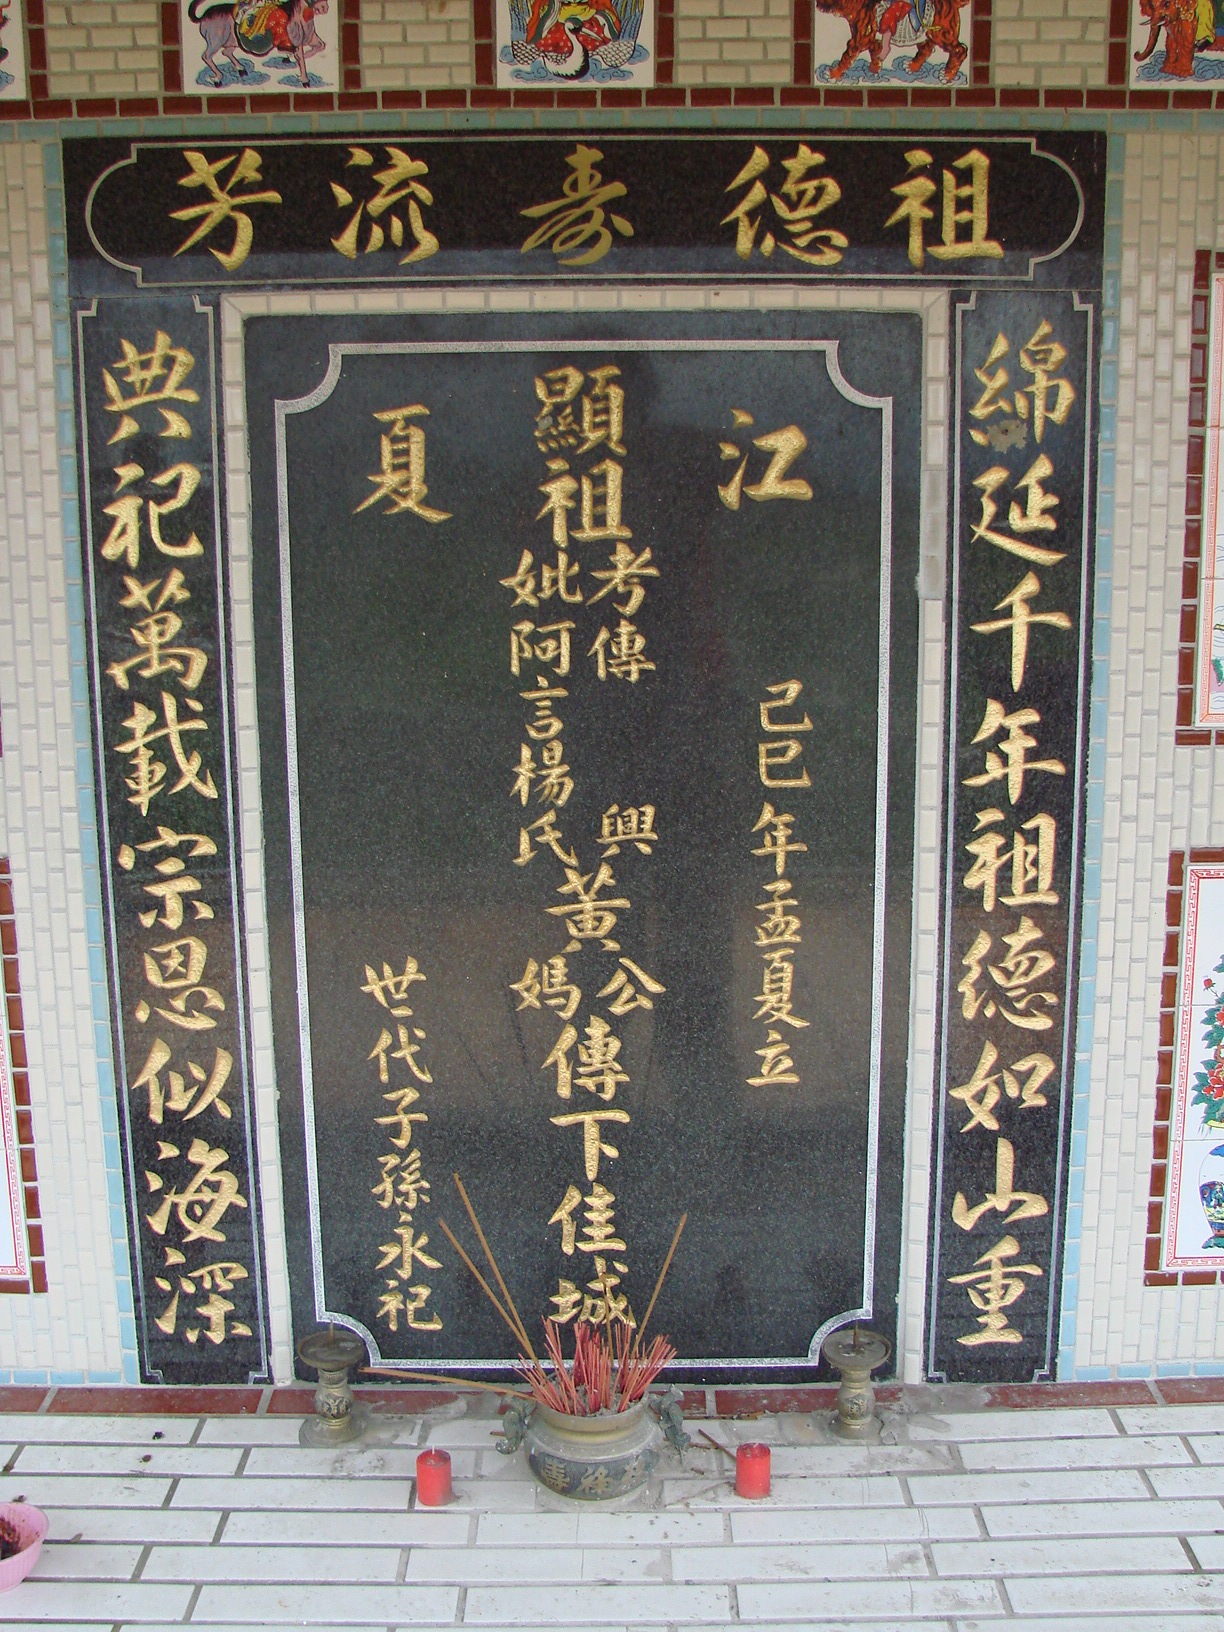 祖德壽流芳
綿延千年祖德如山重
江夏
己巳年孟夏立
顯祖
考傳興
妣阿言楊氏
黃
公
媽
傳下佳城
世代子孫永祀
典祀萬載宗恩似海深